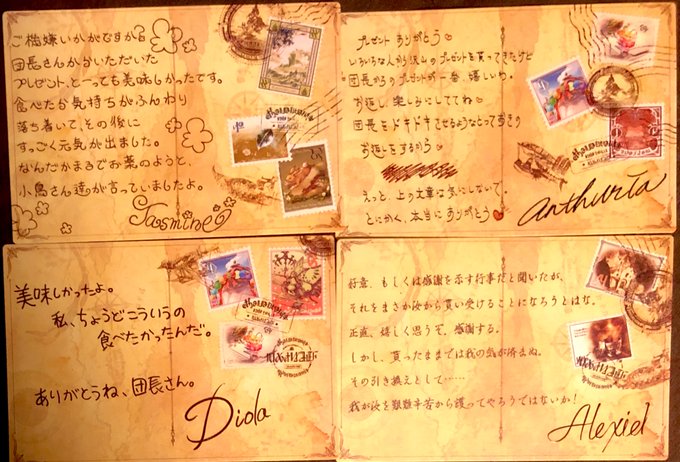 ご機嫌いかがですか。
団長さんからいただいた
プレゼント、とーっても美味しかったです。
食べたら気持ちがふんわり
落ち着いて、その後に
すっごく元気が出ました。
なんだかまるでお薬のようと、
小鳥さん達が言っていましたよ。
Jasmine
プレゼント ありがとう♡
いろいろな人から沢山のプレゼントを貰ってきたけど
団長からのプレゼントが一番、嬉しいわ。
お返し、楽しみにしててね♡
団長をドキドキさせるようなとっておきの
お返しをするから
えっと、上の文章は気にしないで。
とにかく、本当にありがとう♥
Anthuria
美味しかったよ。
私、ちょうどこういうの
食べたかったんだ。
ありがとうね、団長さん。
Diola
好意、もしくは感謝を示す行事だと聞いたが、
それをまさか汝から貰い受けることになろうとはな。
正直、嬉しく思うぞ。感謝する。
しかし、貰ったままでは我の気が済まぬ。
その引き換えとして……
我が汝を艱難辛苦から護ってやろうではないか！
Alexiel